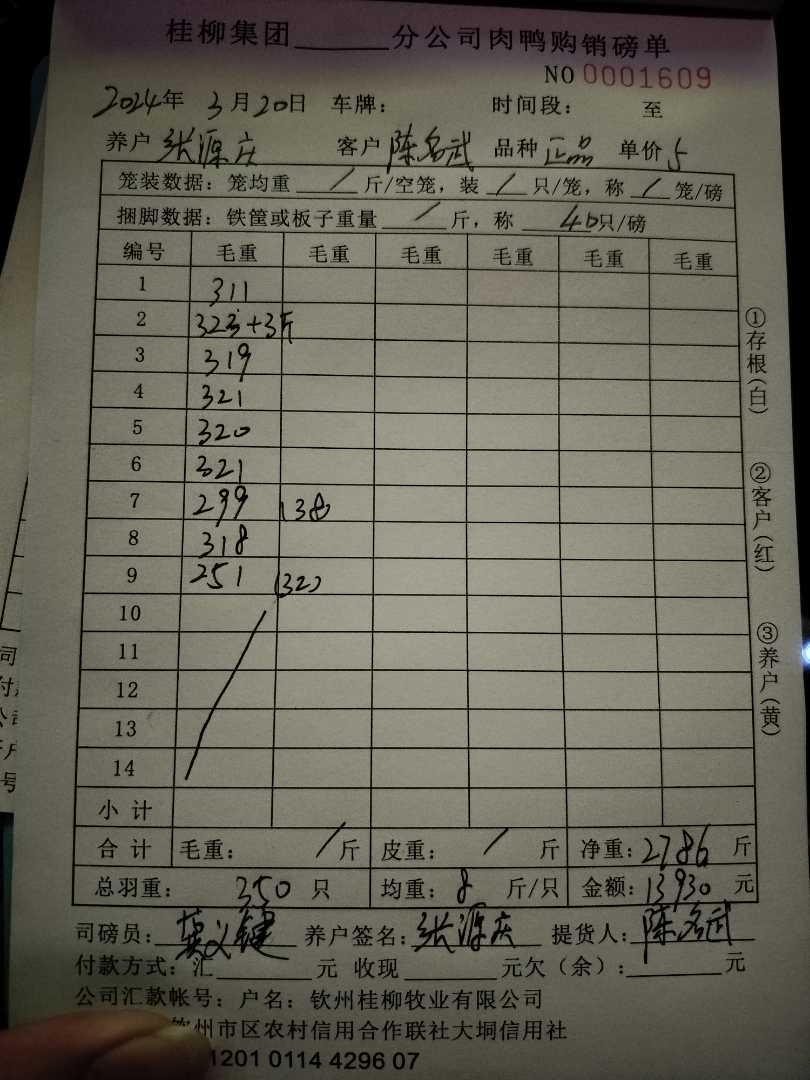 桂柳集团______分公司肉鸭购销磅单
NO 0001609
2024年 3月20日 车牌: 时间段: 至
养户 张源庆 客户 陈名武 品种 正品 单价 5
笼装数据: 笼均重 / 斤/空笼, 装 / 只/笼, 称 / 笼/磅
捆脚数据: 铁筐或板子重量 / 斤, 称 40只/磅
编号 毛重 毛重 毛重 毛重 毛重 毛重
1 311
2 323+3斤
3 319
4 321
5 320
6 321
7 299 (38)
8 318
9 251 (32)
10
11
12
13
14
小计
合计 毛重: / 斤 皮重: / 斤 净重: 2786 斤
总羽重: 350 只 均重: 8 斤/只 金额: 13930 元
司磅员: 莫义键 养户签名: 张源庆 提货人: 陈名武
付款方式: 汇______元 收现______元欠(余):______元
公司汇款帐号: 户名: 钦州桂柳牧业有限公司
钦州市区农村信用合作联社大垌信用社
1201 0114 4296 07
①存根(白)
②客户(红)
③养户(黄)